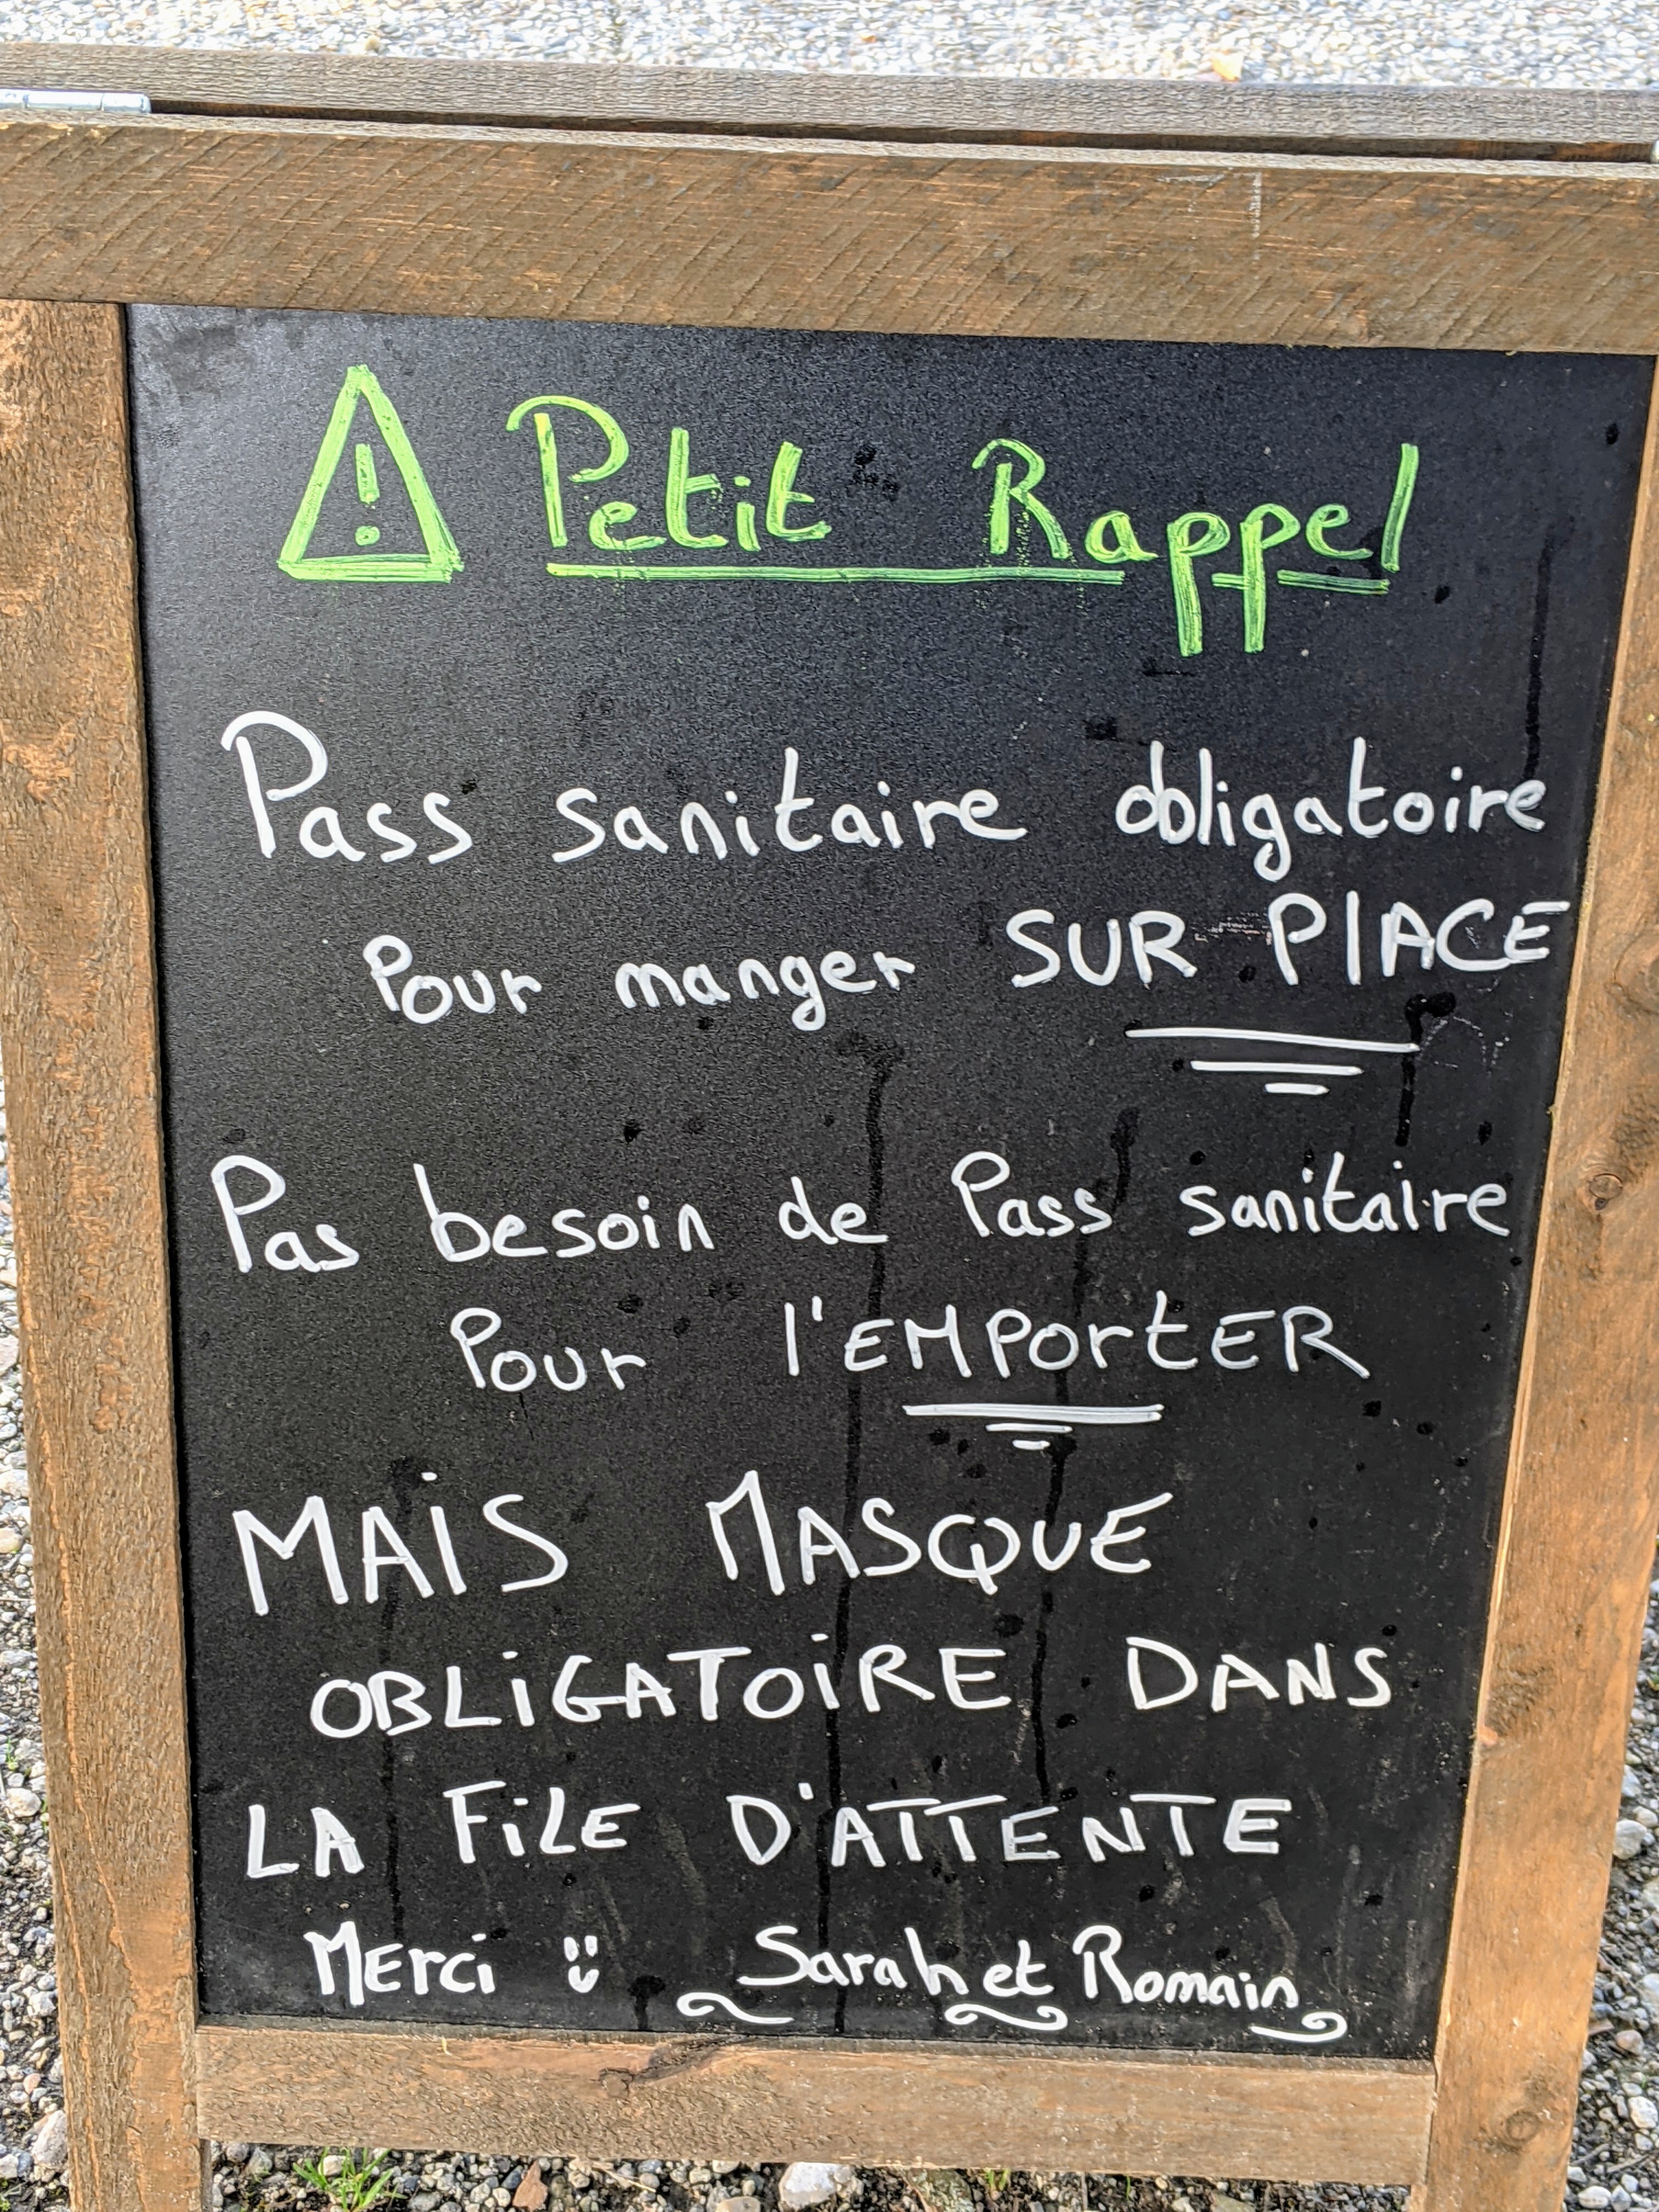 ⚠ Petit Rappel
Pass sanitaire obligatoire
Pour manger SUR PlACE
Pas besoin de Pass sanitaire
Pour l'EMPOrtER
MAiS MASQUE
OBLiGATOiRE DANS
LA FiLE D'ATTENTE
MErci Sarah et Romain